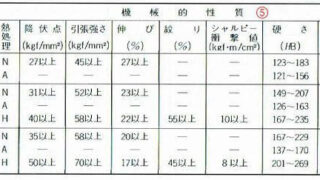 機 械 的 性 質 ⑤
熱処理 降伏点 (kgf/mm²) 引張強さ (kgf/mm²) 伸び (%) 絞り (%) シャルピー衝撃値 (kgf·m/cm²) 硬さ (HB)
N 27以上 45以上 27以上 — — 123〜183
A — — — — — 121〜156
H — — — — — —
N 31以上 52以上 23以上 — — 149〜207
A — — — — — 126〜163
H 40以上 58以上 22以上 55以上 10以上 167〜235
N 35以上 58以上 20以上 — — 167〜229
A — — — — — 137〜170
H 50以上 70以上 17以上 45以上 8以上 201〜269